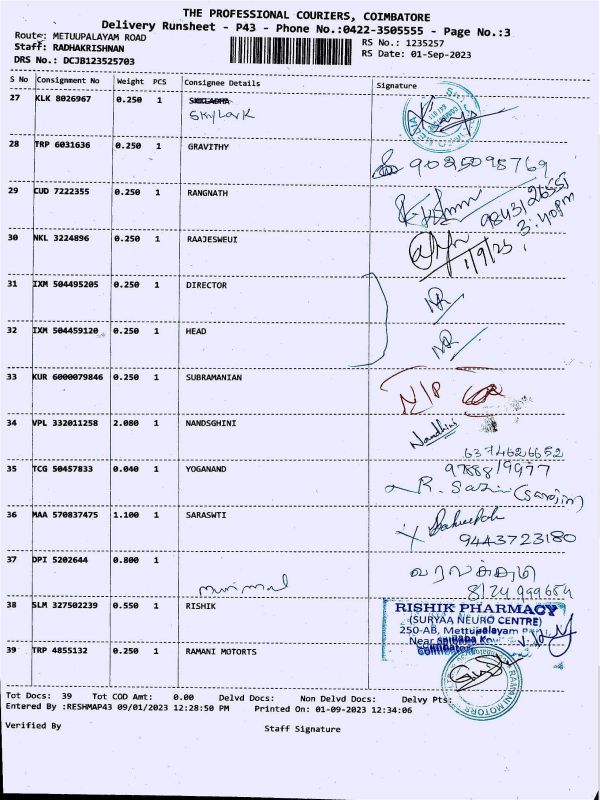 THE PROFESSIONAL COURIERS, COIMBATORE
Delivery Runsheet - P43 - Phone No.:0422-3505555 - Page No.:3
Route: METUUPALAYAM ROAD
RS No.: 1235257
Staff: RADHAKRISHNAN
RS Date: 01-Sep-2023
DRS No.: DCJB123525703
S No Consignment No Weight PCS Consignee Details Signature
27 KLK 8026967 0.250 1
Skylark
28 TRP 6031636 0.250 1 GRAVITHY
9025098769
29 CUD 7222355 0.250 1 RANGNATH
9843126551
3:40pm
30 NKL 3224896 0.250 1 RAAJESWEUI
1/9/23
31 IXM 504495205 0.250 1 DIRECTOR
NR
32 IXM 504459120 0.250 1 HEAD
NR
33 KUR 6000079846 0.250 1 SUBRAMANIAN
N/P
34 VPL 332011258 2.080 1 NANDSGHINI
Nandhini
6374626652
35 TCG 50457833 0.040 1 YOGANAND
9788819977
R. Sasini (Sarojini)
36 MAA 570837475 1.100 1 SARASWTI
9443723180
37 DPI 5202644 0.800 1
minimal
வரலக்சுமி
8124999654
38 SLM 327502239 0.550 1 RISHIK
RISHIK PHARMACY
(SURYAA NEURO CENTRE)
250-AB, Mettupalayam
Near
39 TRP 4855132 0.250 1 RAMANI MOTORTS
RAMANI MOTORS
Tot Docs: 39 Tot COD Amt: 0.00 Delvd Docs: Non Delvd Docs: Delvy Pts:
Entered By :RESHMAP43 09/01/2023 12:28:50 PM Printed On: 01-09-2023 12:34:06
Verified By
Staff Signature